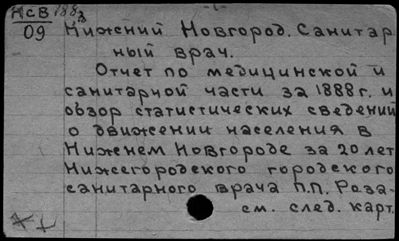 НсВ 1888
09 Нижний Новгород. Санитар
ный врач.
Отчет по медицинской и
санитарной части за 1888 г. и
обзор статистических сведений
о движении населения в
Нижнем Новгороде за 20 лет
Нижегородского городского
санитарного врача П.П. Роза-
см. след. карт.